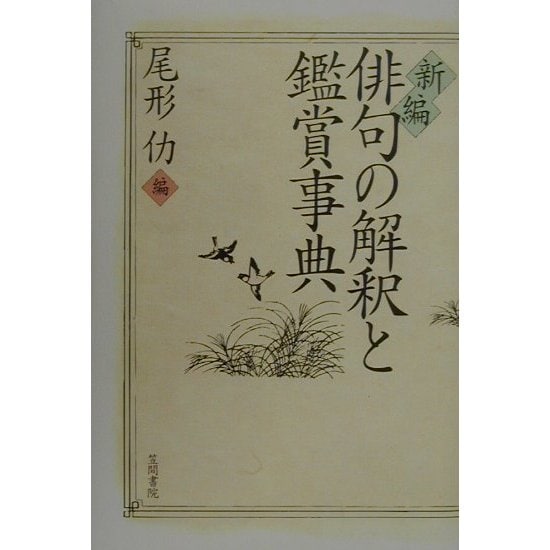 新編
俳句の解釈と
鑑賞事典
尾形仂
編
笠間書院